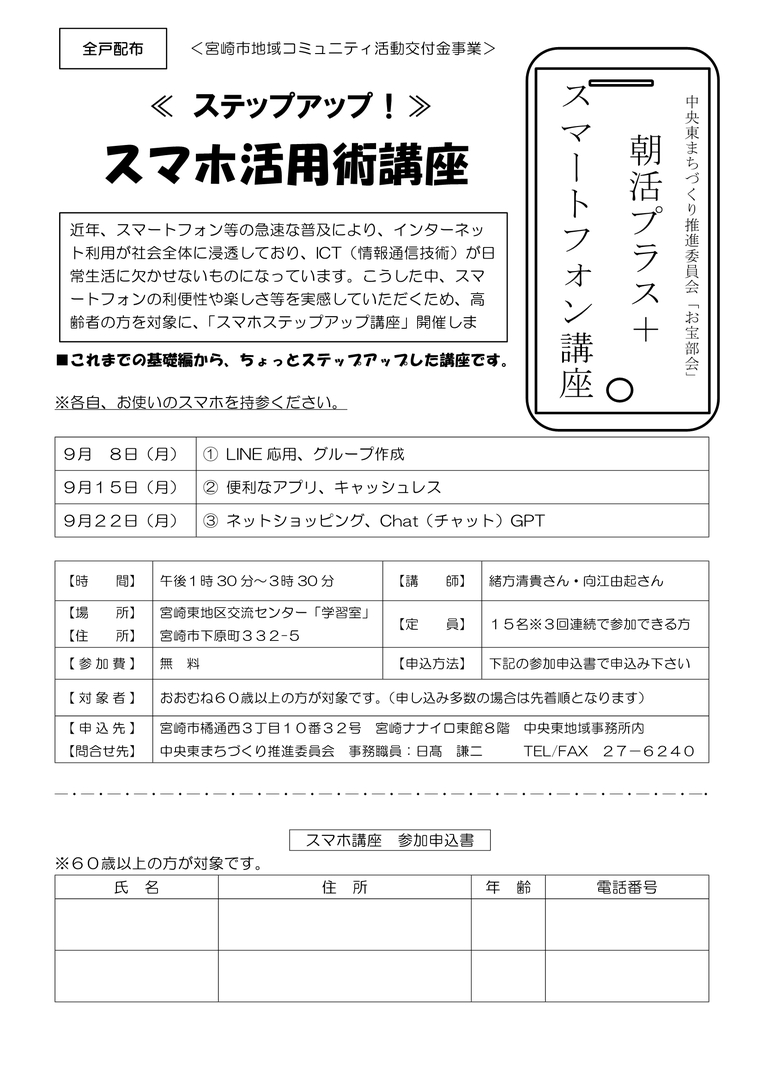 全戸配布
＜宮崎市地域コミュニティ活動交付金事業＞
≪ ステップアップ！≫
スマホ活用術講座
近年、スマートフォン等の急速な普及により、インターネッ
ト利用が社会全体に浸透しており、ICT（情報通信技術）が日
常生活に欠かせないものになっています。こうした中、スマ
ートフォンの利便性や楽しさ等を実感していただくため、高
齢者の方を対象に、「スマホステップアップ講座」開催しま
■これまでの基礎編から、ちょっとステップアップした講座です。
※各自、お使いのスマホを持参ください。
中央東まちづくり推進委員会「お宝部会」
朝活プラス＋
スマートフォン講座
９月　８日（月） ① LINE 応用、グループ作成
９月１５日（月） ② 便利なアプリ、キャッシュレス
９月２２日（月） ③ ネットショッピング、Chat（チャット）GPT
【時　　間】 午後１時 30 分～３時 30 分 【講　　師】 緒方清貴さん・向江由起さん
【場　　所】 宮崎東地区交流センター「学習室」
【住　　所】 宮崎市下原町３３２-５
【定　　員】 １５名※３回連続で参加できる方
【参加費】 無　料 【申込方法】 下記の参加申込書で申込み下さい
【対象者】 おおむね６０歳以上の方が対象です。（申し込み多数の場合は先着順となります）
【申込先】 宮崎市橘通西３丁目１０番３２号　宮崎ナナイロ東館８階　中央東地域事務所内
【問合せ先】 中央東まちづくり推進委員会　事務職員：日髙　謙二　　TEL/FAX　２７－６２４０
スマホ講座　参加申込書
※６０歳以上の方が対象です。
氏　名 住　所 年　齢 電話番号